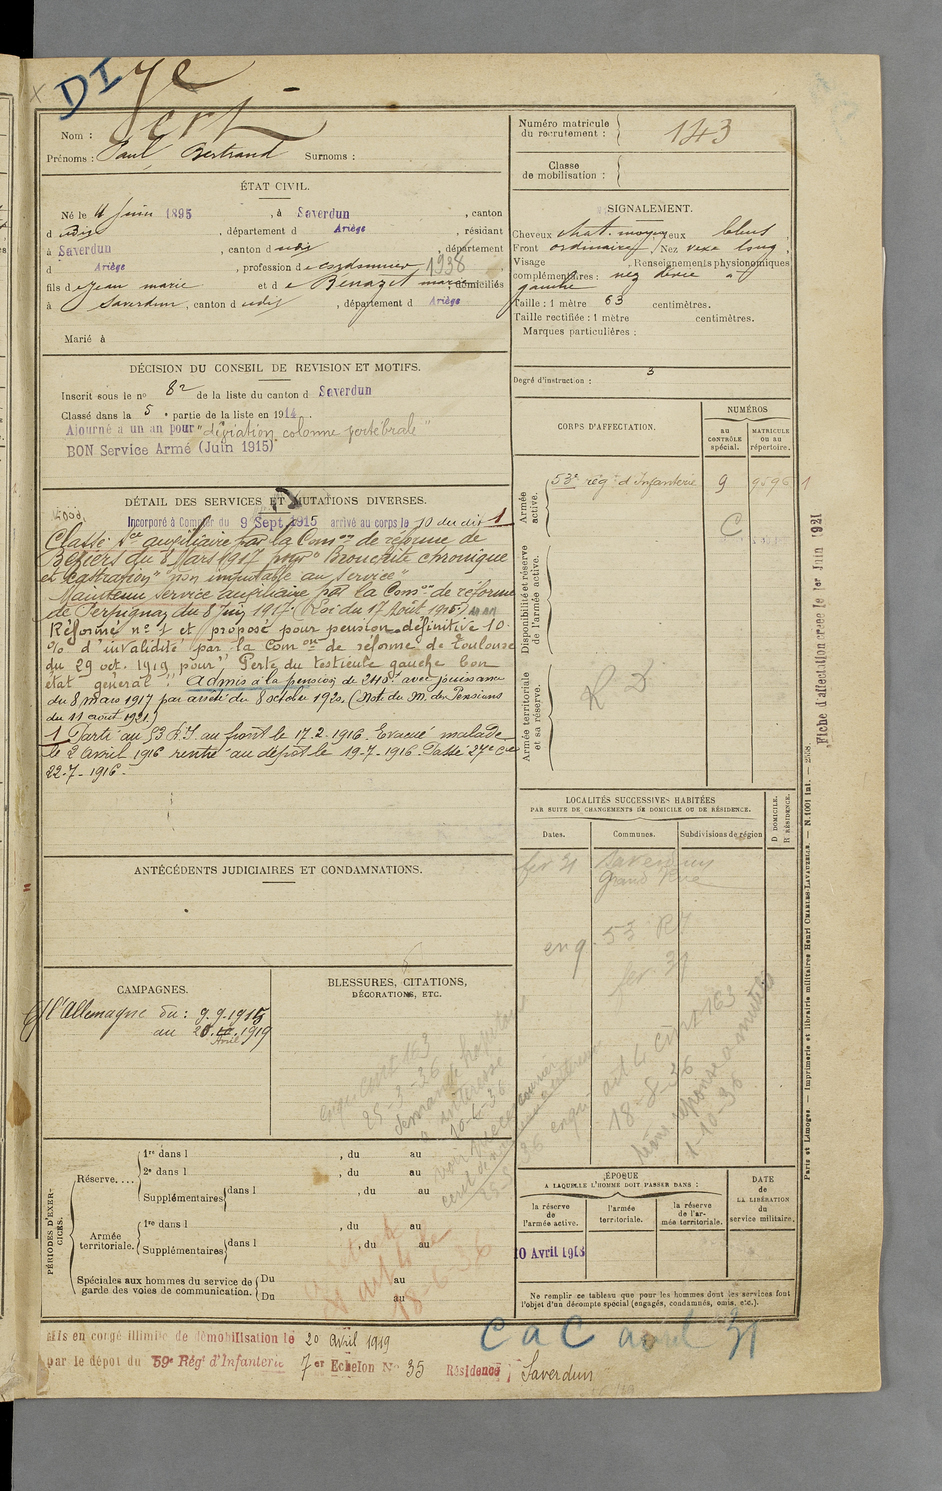 DI
Nom :
Prénoms : Paul Bertrand Surnoms :
ÉTAT CIVIL.
Né le 4 Juin 1895 , à Saverdun , canton
d udis , département d Ariège , résidant
à Saverdun , canton d udis , département
d Ariège , profession de cordonnier 1938
fils de Jean marie et de Benazet marie , domiciliés
à Saverdun , canton d udis , département d Ariège
Marié à
DÉCISION DU CONSEIL DE REVISION ET MOTIFS.
Inscrit sous le no 82 de la liste du canton d Saverdun
Classé dans la 5 e partie de la liste en 1914 .
Ajourné à un an pour "déviation colonne vertébrale"
BON Service Armé (Juin 1915)
DÉTAIL DES SERVICES ET MUTATIONS DIVERSES.
Incorporé à Compter du 9 Sept 1915 arrivé au corps le 10 du dit 1
Classé Sce auxiliaire par la Comon de réforme de
Béziers du 8 Mars 1917 pour "Bronchite chronique
et castration" "non imputable au service"
Maintenu service auxiliaire par la Comon de réforme
de Perpignan du 8 Juin 1917. (Loi du 17 Août 1915)
Réformé no 1 et proposé pour pension définitive 10
% d'invalidité par la Comon de réforme de Toulouse
du 29 oct. 1919 pour "Perte du testicule gauche bon
état général" Admis à la pension de 240f avec jouissance
du 8 mars 1917 par arrêté du 8 octobre 1920. (Not. du M. des Pensions
du 11 août 1921)
1 Parti au 53 R.I. au front le 17-2-1916. Evacué malade
le 2 avril 1916 rentré au dépôt le 19-7-1916. Passé 27e Cie
22-7-1916.
ANTÉCÉDENTS JUDICIAIRES ET CONDAMNATIONS.
CAMPAGNES.
C/ l'Allemagne du : 9.9.1915
au 20. Avril 1919
BLESSURES, CITATIONS,
DÉCORATIONS, ETC.
enqu. cint 163
25-3-36
demande hôpitaux
à intéressé
10-4-36
PÉRIODES D'EXERCICES.
Réserve....
1re dans l , du au
2e dans l , du au
Supplémentaires dans l , du au
Armée territoriale.
1re dans l , du au
Supplémentaires dans l , du au
Spéciales aux hommes du service de garde des voies de communication.
Du au
Du au
18-6-36
Mis en congé illimité de démobilisation le 20 avril 1919
par le dépôt du 59e Régt d'Infanterie 7er Echelon No 35 Résidence : Saverdun
Numéro matricule du recrutement : 143
Classe de mobilisation :
SIGNALEMENT.
Cheveux chat. moyen yeux bleus
Front ordinaire Nez vexe long
Visage . Renseignements physionomiques
complémentaires : nez dévié à
gauche
Taille : 1 mètre 63 centimètres.
Taille rectifiée : 1 mètre centimètres.
Marques particulières :
Degré d'instruction : 3
CORPS D'AFFECTATION.
NUMÉROS
au CONTRÔLE spécial.
MATRICULE ou au répertoire.
Armée active.
53e régt d'Infanterie 9 9596 1
C
Disponibilité et réserve de l'armée active.
Armée territoriale et sa réserve.
R D
LOCALITÉS SUCCESSIVES HABITÉES
PAR SUITE DE CHANGEMENTS DE DOMICILE OU DE RÉSIDENCE.
Dates. Communes. Subdivisions de région
D DOMICILE.
R RÉSIDENCE.
fev 31 Saverdun
Grand Rue
enq. 53 RI
fev 31
enqu. art 4 cint 163
18-8-36
1-10-36
ÉPOQUE
A LAQUELLE L'HOMME DOIT PASSER DANS :
la réserve de l'armée active.
l'armée territoriale.
la réserve de l'armée territoriale.
DATE de LA LIBÉRATION du service militaire.
10 Avril 1918
Ne remplir ce tableau que pour les hommes dont les services font
l'objet d'un décompte spécial (engagés, condamnés, omis, etc.).
C a C avril 31
Fiche d'affectation créée le 1er Juin 1921
Paris et Limoges. — Imprimerie et librairie militaires Henri CHARLES-LAVAUZELLE. — N. 1001 Int. — 2558.